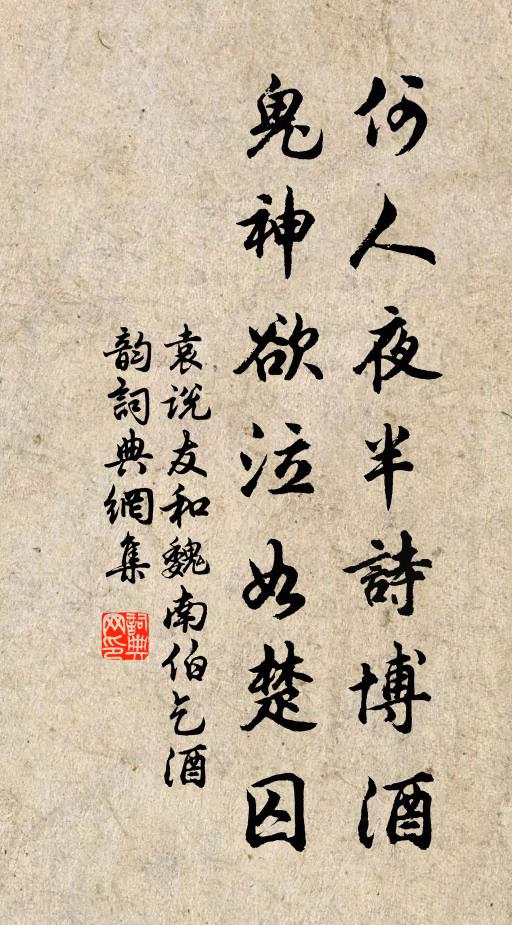 何人夜半詩博酒
鬼神欲泣如楚囚
袁说友和魏南伯乞酒
韵詞典網集
詞典网印